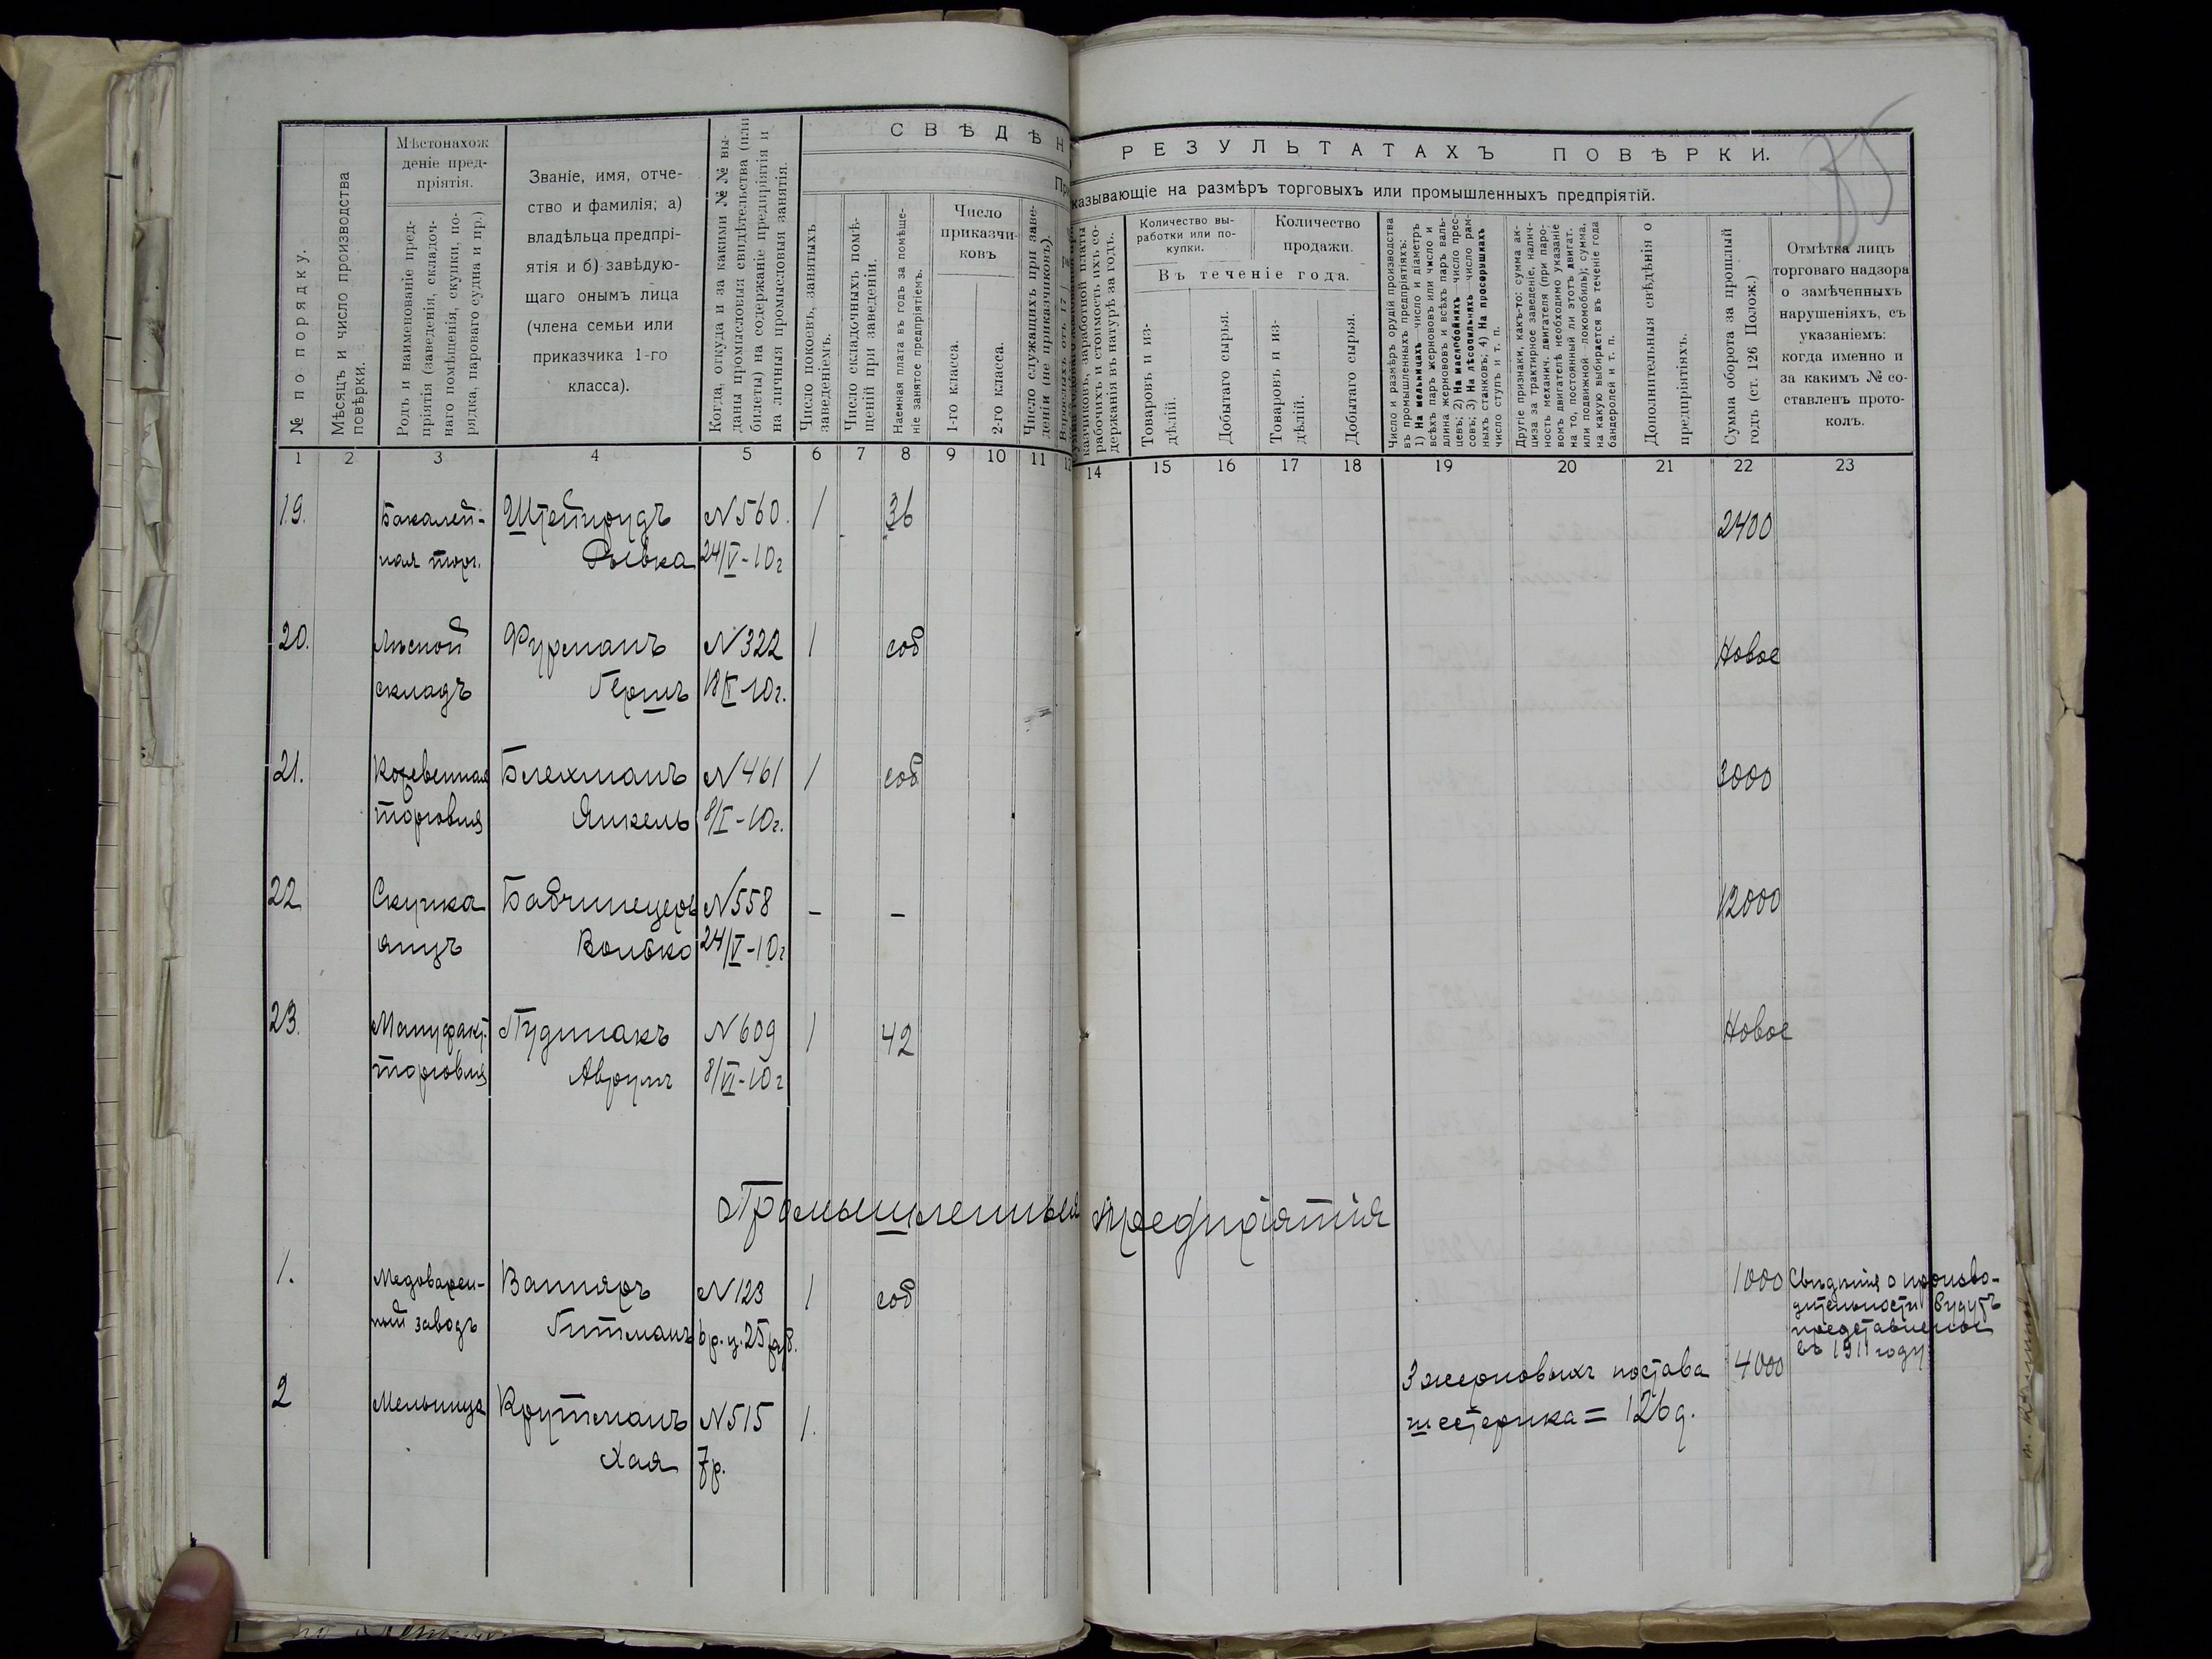 СВѢДѢН
РЕЗУЛЬТАТАХЪ ПОВѢРКИ.
казывающіе на размѣръ торговыхъ или промышленныхъ предпріятій.
№ по порядку.
Мѣсяцъ и число производства
повѣрки.
Мѣстонахож
деніе пред-
пріятія.
Родъ и наименованіе пред-
пріятія (заведенія, складоч-
наго помѣщенія, скупки, по-
рядка, пароваго судна и пр.)
Званіе, имя, отче-
ство и фамилія; а)
владѣльца предпрі-
ятія и б) завѣдую-
щаго онымъ лица
(члена семьи или
приказчика 1-го
класса).
Когда, откуда и за какими №№ вы-
даны промысловыя свидѣтельства (или
билеты) на содержаніе предпріятія и
на личныя промысловыя занятія.
Число покоевъ, занятыхъ
заведеніемъ.
Число складочныхъ помѣ-
щеній при заведеніи.
Наемная плата въ годъ за помѣще-
ніе занятое предпріятіемъ.
Число
приказчи-
ковъ
1-го класса.
2-го класса.
Число служащихъ при заве-
деніи (не приказчиковъ).
казчиковъ, заработной платы
рабочихъ и стоимость ихъ со-
держанія въ натурѣ за годъ.
Количество вы-
работки или по-
купки.
Количество
продажи.
Въ теченіе года.
Товаровъ и из-
дѣлій.
Добытаго сырья.
Товаровъ и из-
дѣлій.
Добытаго сырья.
Число и размѣръ орудій производства
въ промышленныхъ предпріятіяхъ:
1) На мельницахъ—число и діаметръ
всѣхъ паръ жернововъ или число и
длина жернововъ и всѣхъ паръ валь-
цевъ; 2) На маслобойняхъ число прес-
совъ; 3) На лѣсопильняхъ число рам-
ныхъ станковъ; 4) На просорушкахъ
число ступъ и т. п.
Другіе признаки, какъ-то: сумма ак-
циза за трактирное заведеніе, налич-
ность механич. двигателя (при паро-
вомъ двигателѣ необходимо указаніе
на то, постоянный ли этотъ двигат.
или подвижной—локомобиль); сумма,
на какую выбирается въ теченіе года
бандеролей и т. п.
Дополнительныя свѣдѣнія о
предпріятіяхъ.
Сумма оборота за прошлый
годъ (ст. 126 Полож.)
Отмѣтка лицъ
торговаго надзора
о замѣченныхъ
нарушеніяхъ, съ
указаніемъ:
когда именно и
за какимъ № со-
ставленъ прото-
колъ.
1 2 3 4 5 6 7 8 9 10 11 14 15 16 17 18 19 20 21 22 23
19. Бакалей- Штейнрудъ №560. 1 36 2400
ная торг. Рывка 24/V-10г
20. Лѣсной Фурманъ №322 1 соб Новое
складъ Гершъ 18/I-10г.
21. Кожевенная Блехманъ №461 1 соб 3000
торговля Янкель 8/I-10г.
22 Скупка Бабчинецеръ №558 - - 12000
яицъ Волько 24/V-10г
23. Мануфакт. Пудмакъ №609 1 42 Новое
торговля Аврумъ 8/VI-10г
Промышленныя предпріятія
1. Медоварен- Ваиняръ №123 1 соб 1000 Свѣдѣнія о произво-
ный заводъ Гитманъ 6р. ц. 25 дительности будутъ
представлены
въ 1911 году
2 Мельница Крутманъ №515 1. 3 жерновыхъ постава 4000
Хая 7р. шестерика = 126 д.